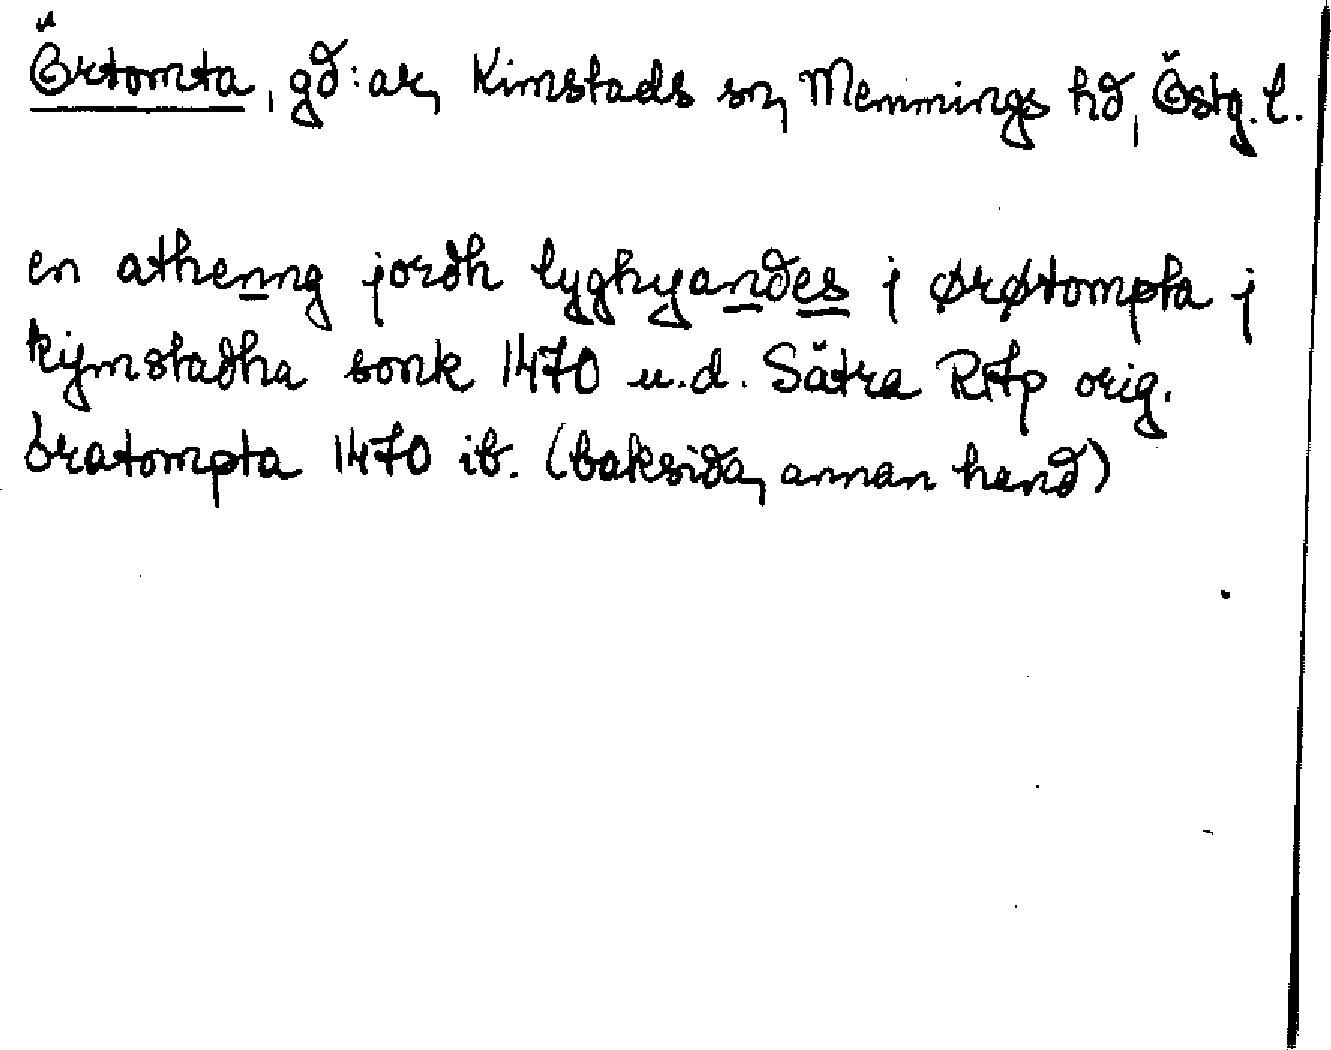 Örtomta, gd:ar, Kimstads sn, Memmings hd, Östg. l.
en athenng jordh lyghyandes j ørøtompta j
kijmstadha sonk 1470 u.d. Sätra RAp orig.
öratompta 1470 ib. (baksida, annan hand)